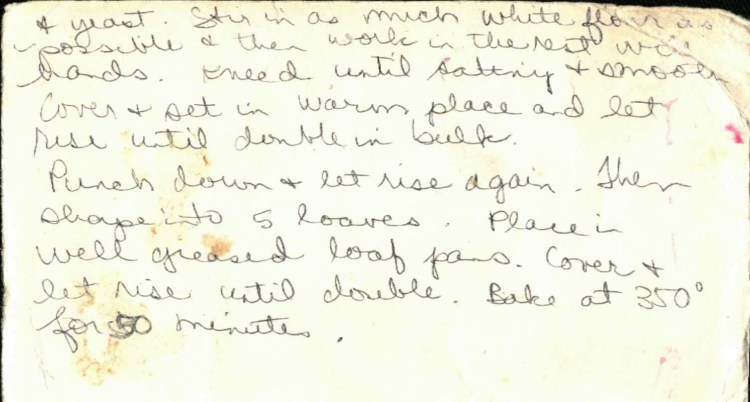 & yeast. Stir in as much white flour as
possible & then work in the rest with
hands. Kneed until satiny & smooth
Cover & set in warm place and let
rise until double in bulk.
Punch down & let rise again. Then
shape into 5 loaves. Place in
well greased loaf pans. Cover &
let rise until double. Bake at 350°
for 50 minutes.